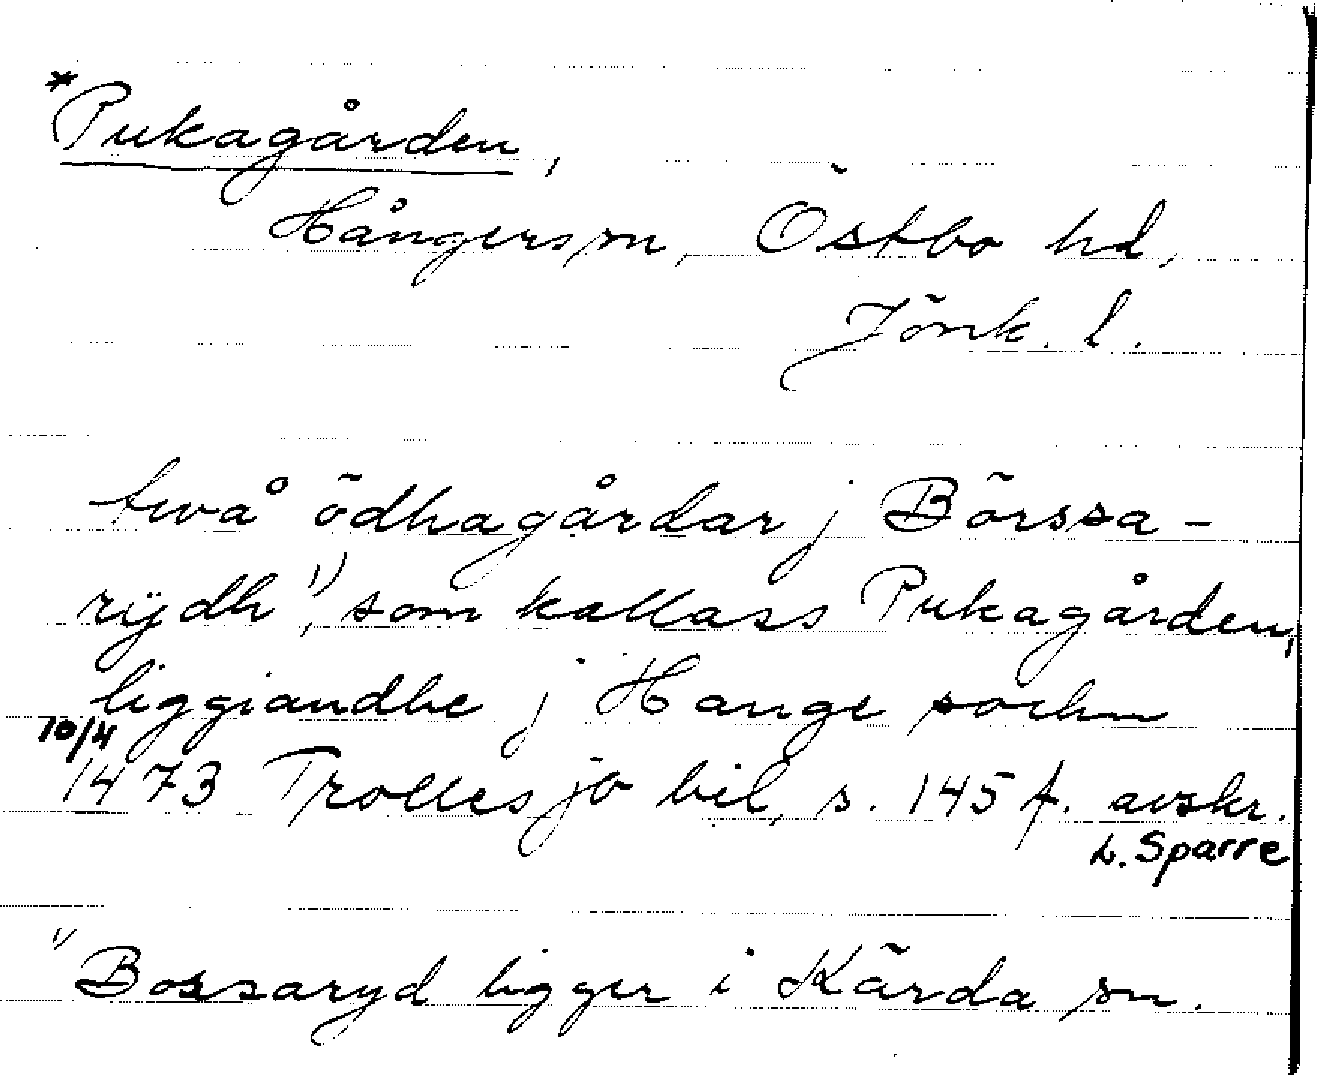 *Pukagården,
Hångers sn, Östbo hd,
Jönk. l.
twå ödhagårdar j Börssa-
rydh 1), som kallass Pukagården,
liggiandhe j Hange sochn
10/4
1473 Trollesjö bil, s. 145 f. avskr.
L. Sparre
1) Bossaryd ligger i Kärda sn.